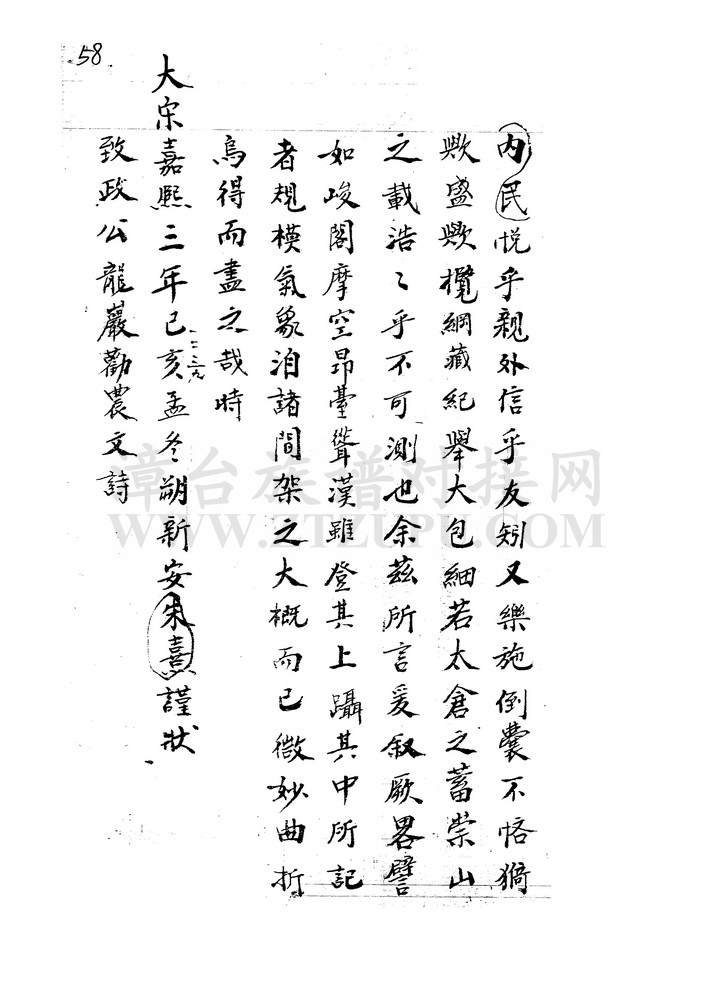 58.
内民悦乎親外信乎友矧又樂施倒囊不悋猗
歟盛歟攬綱藏紀舉大包細若太倉之蓄崇山
之載浩〻乎不可測也余茲所言爰叙厥畧譬
如峻閣摩空昂臺聳漢雖登其上躡其中所記
者規模氣象洎諸間架之大概而已微妙曲折
烏得而盡之哉時
大宋嘉熙三年己亥孟冬朔新安朱熹謹狀
一二三九
致政公龍巖勸農文詩
章台族谱对接网
WWW.ZTZUPU.COM